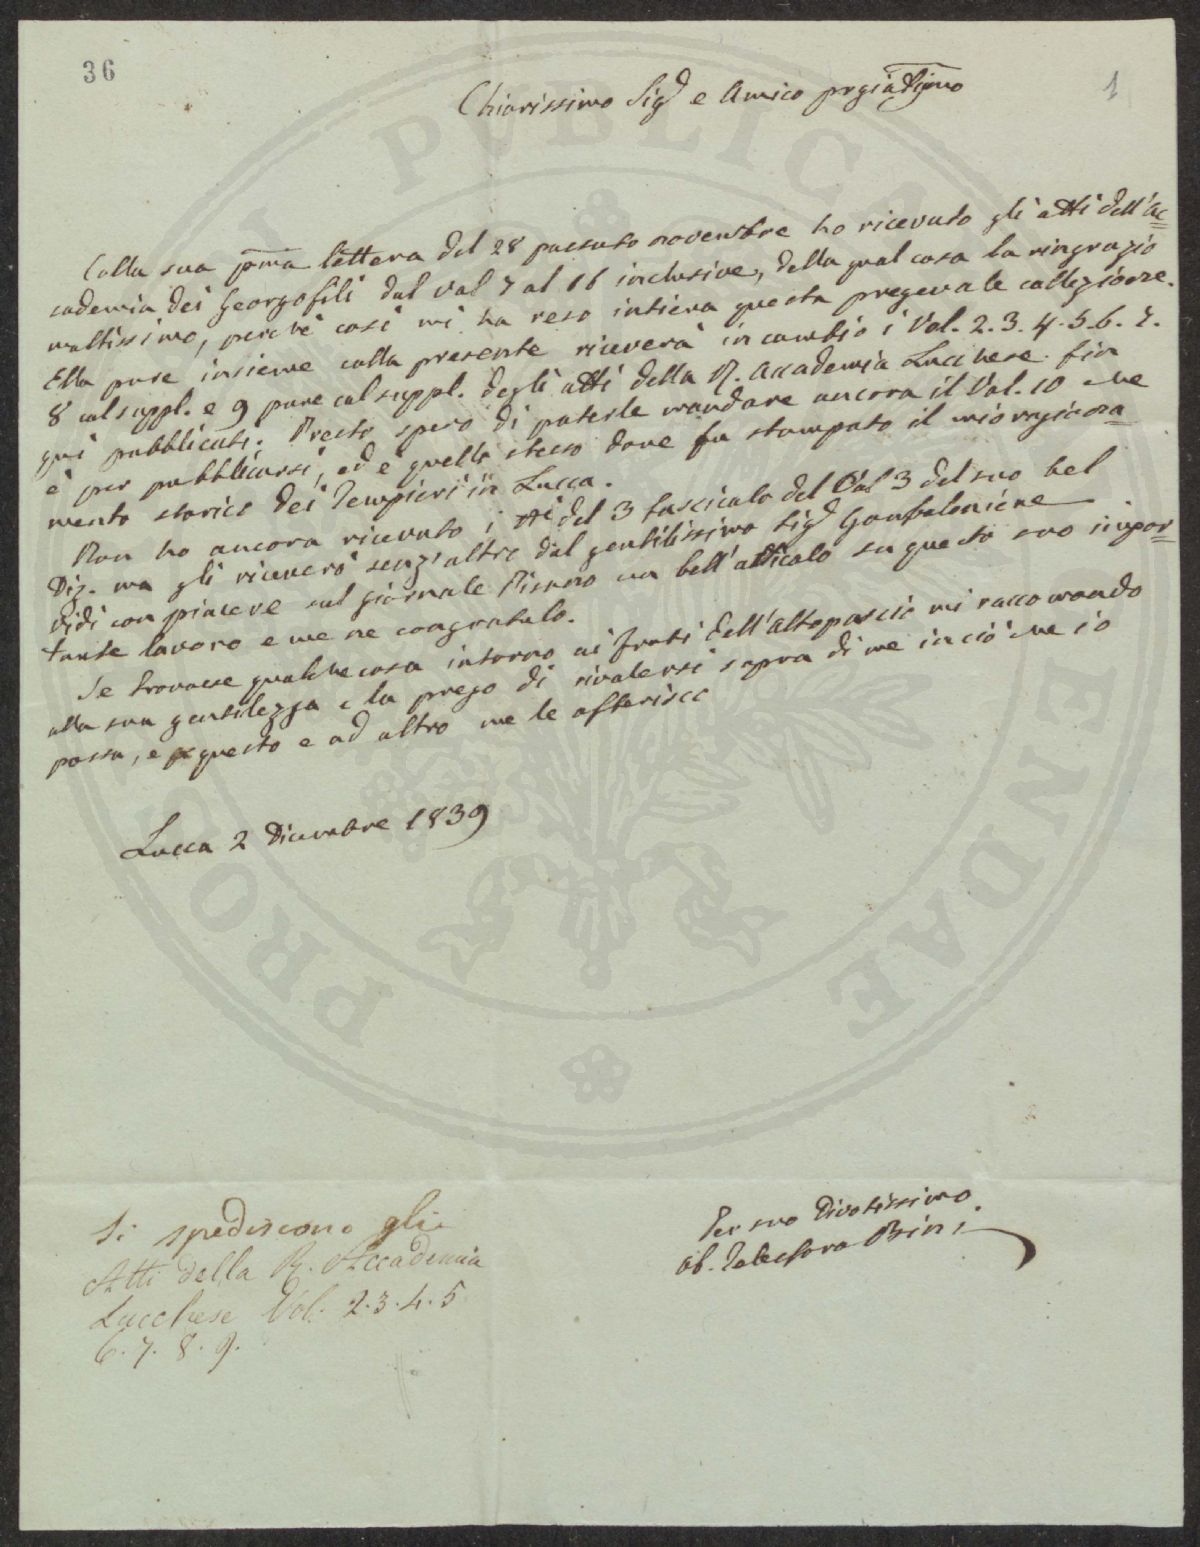 36
1
Chiarissimo Sig.r e Amico
Colla sua pma lettera del 28 passato novembre ho ricevuto gli atti dell'Ac=
cademia dei Georgofili dal Vol 7 al 16 inclusive, della qual cosa la ringrazio
moltissimo, perchè così mi ha reso intiera questa pregevole collezione.
Ella pure insieme colla presente riceverà in cambio i Vol. 2. 3. 4. 5. 6. 7.
8 col suppl. e 9 pure col suppl. degli atti della R. Accademia Lucchese fin
quì pubblicati. Presto spero di poterle mandare ancora il Vol. 10 che
è per pubblicarsi, ed è quello stesso dove fu stampato il mio ragiona=
mento storico dei Tempieri in Lucca.
Non ho ancora ricevuto i del 3 fascicolo del Vol 3 del suo bel
Diz. ma gli riceverò senz'altro dal gentilissimo Sig.r Gonfaloniere
Vidi con piacere sul giornale Pisano un bell'atticolo su questo suo impor=
tante lavoro e me ne congratulo.
Se trovasse qualche cosa intorno ai frati dell'Altopascio mi raccomando
alla sua gentilezza e la prego di rivalersi sopra di me in ciò che io
possa, e questo e ad altro me le offerisco
Lucca 2 Dicembre 1839
Per suo Divotissimo
ab. Telesforo Bini
Si spediscono gli
Atti della R. Accademia
Lucchese Vol. 2. 3. 4. 5
6. 7. 8. 9.
PROSPERITATI PUBLICAE AUGENDAE